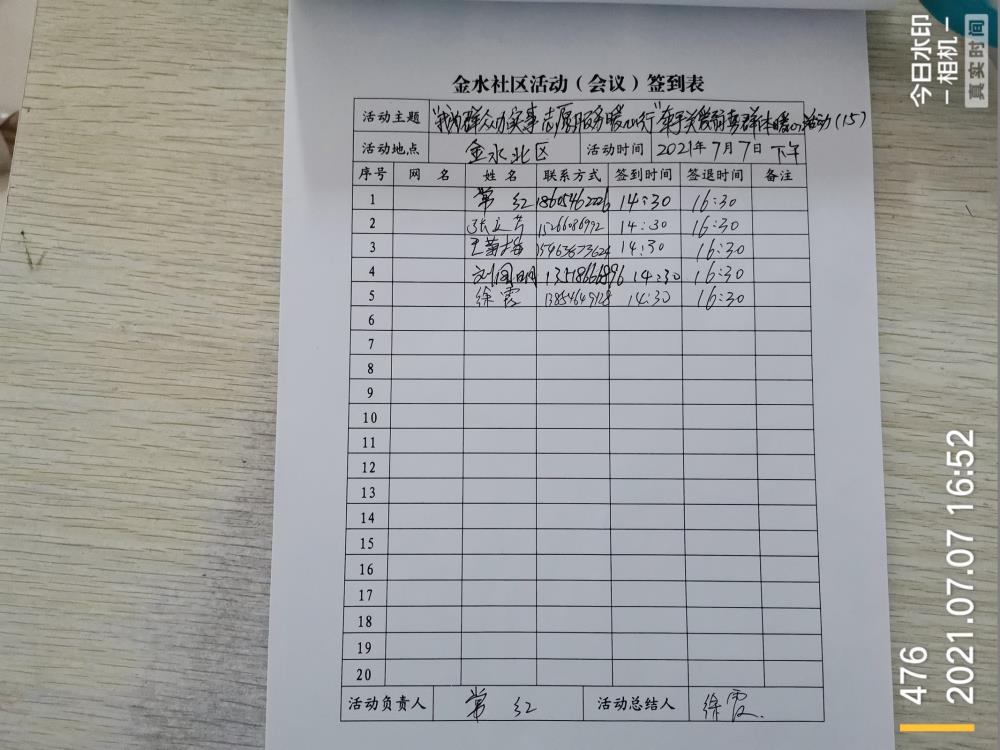 金水社区活动（会议）签到表
活动主题 "我为群众办实事志愿服务暖心行"牵手关爱弱势群体暖心活动(15)
活动地点 金水北区 活动时间 2021年7月7日 下午
序号 网 名 姓 名 联系方式 签到时间 签退时间 备注
1 常 红 18605462226 14:30 16:30
2 15266086992 14:30 16:30
3 王菊梅 15463673624 14:30 16:30
4 刘国明 14:30 16:30
5 徐霞 13854649128 14:30 16:30
6
7
8
9
10
11
12
13
14
15
16
17
18
19
20
活动负责人 常 红 活动总结人 徐霞.
今日水印
-相机-
真实时间
476
2021.07.07 16:52